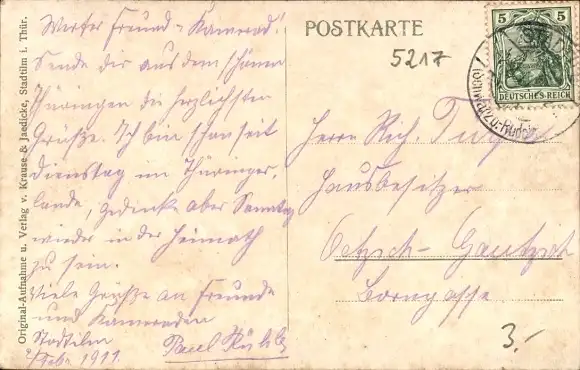 Werter Freund u. Kamerad!
Sende dir aus dem schönen
Thüringen die herzlichsten
Grüße. Ich bin schon seit
Dienstag im Thüringer-
lande, gedenke aber Sonntag
wieder in der Heimath
zu sein.
Viele Grüße an Freunde
und Kameraden
Stadtilm
1911.
Paul
Original-Aufnahme u. Verlag v. Krause & Jaedicke, Stadtilm i. Thür.
POSTKARTE
5217
5 5
DEUTSCHES REICH
Herrn Rich.
Hausbesitzer
Oetzsch-Gautzsch
Borngasse
3.-